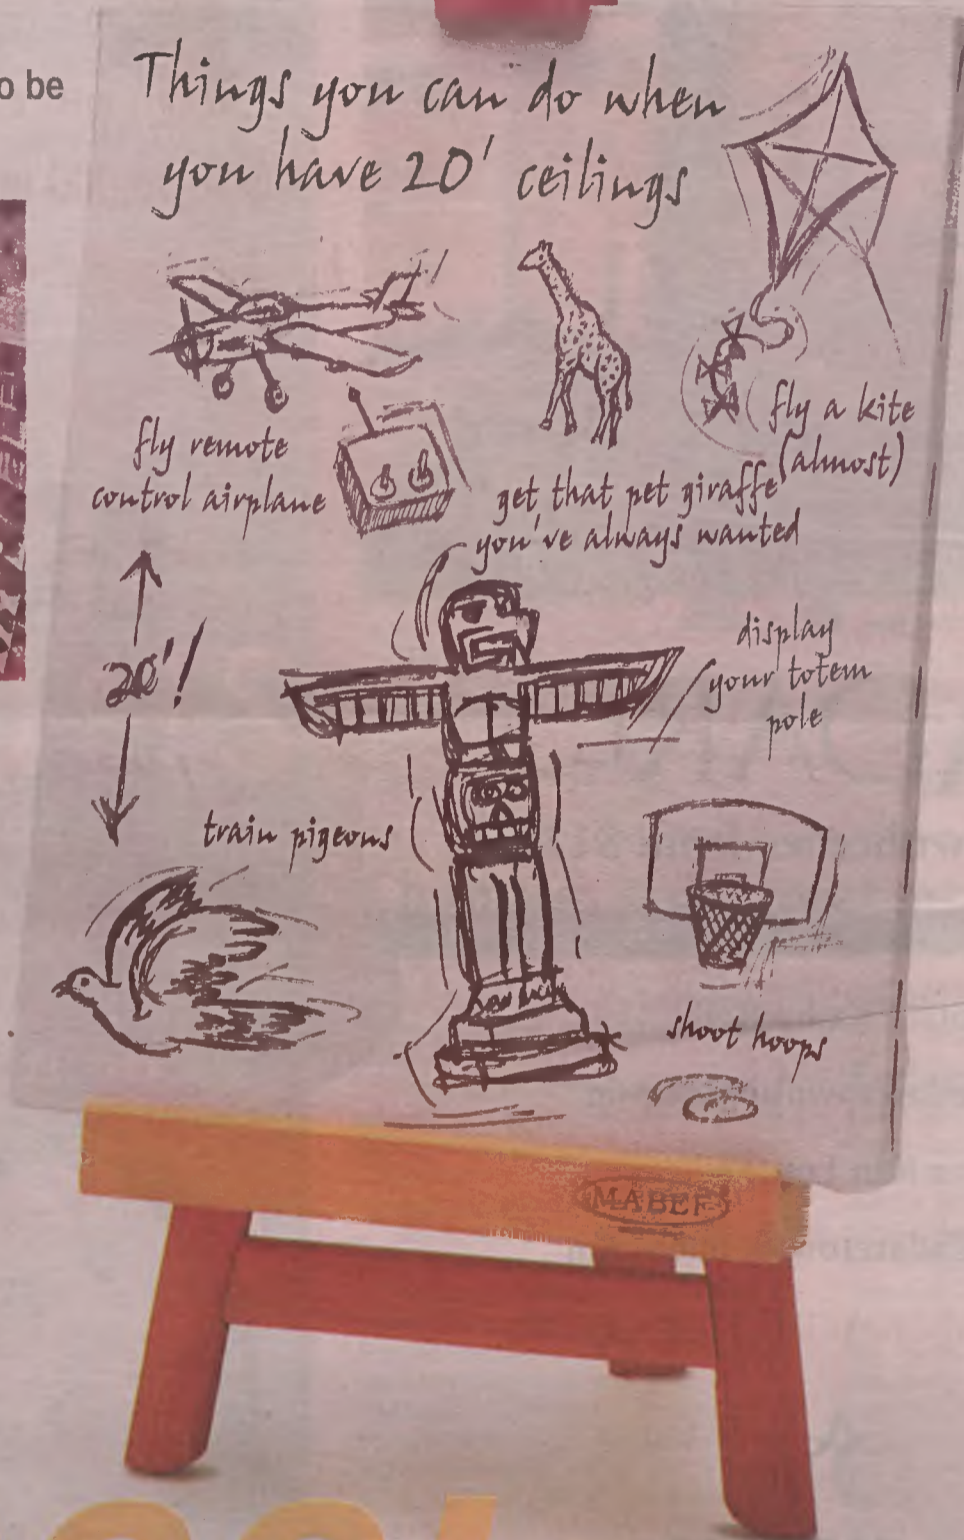 o be
Things you can do when
you have 20' ceilings
fly remote
control airplane
fly a kite
(almost)
get that pet giraffe
you've always wanted
20'!
display
your totem
pole
train pigeons
shoot hoops
MABEF